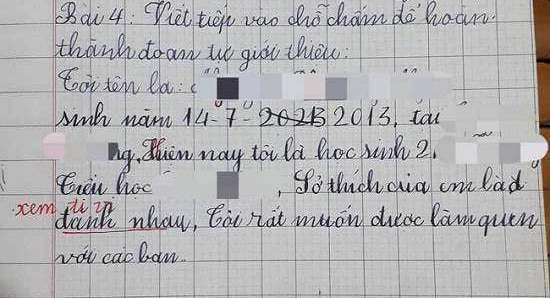 Bài 4: Viết tiếp vào chỗ chấm để hoàn
thành đoạn tự giới thiệu:
Tôi tên là:
sinh năm 14-7-2021B 2013, tại
ng, Hiện nay tôi là học sinh 2
Tiểu học , Sở thích của em là đ
xem đi
đánh nhau, Tôi rất muốn được làm quen
với các bạn.